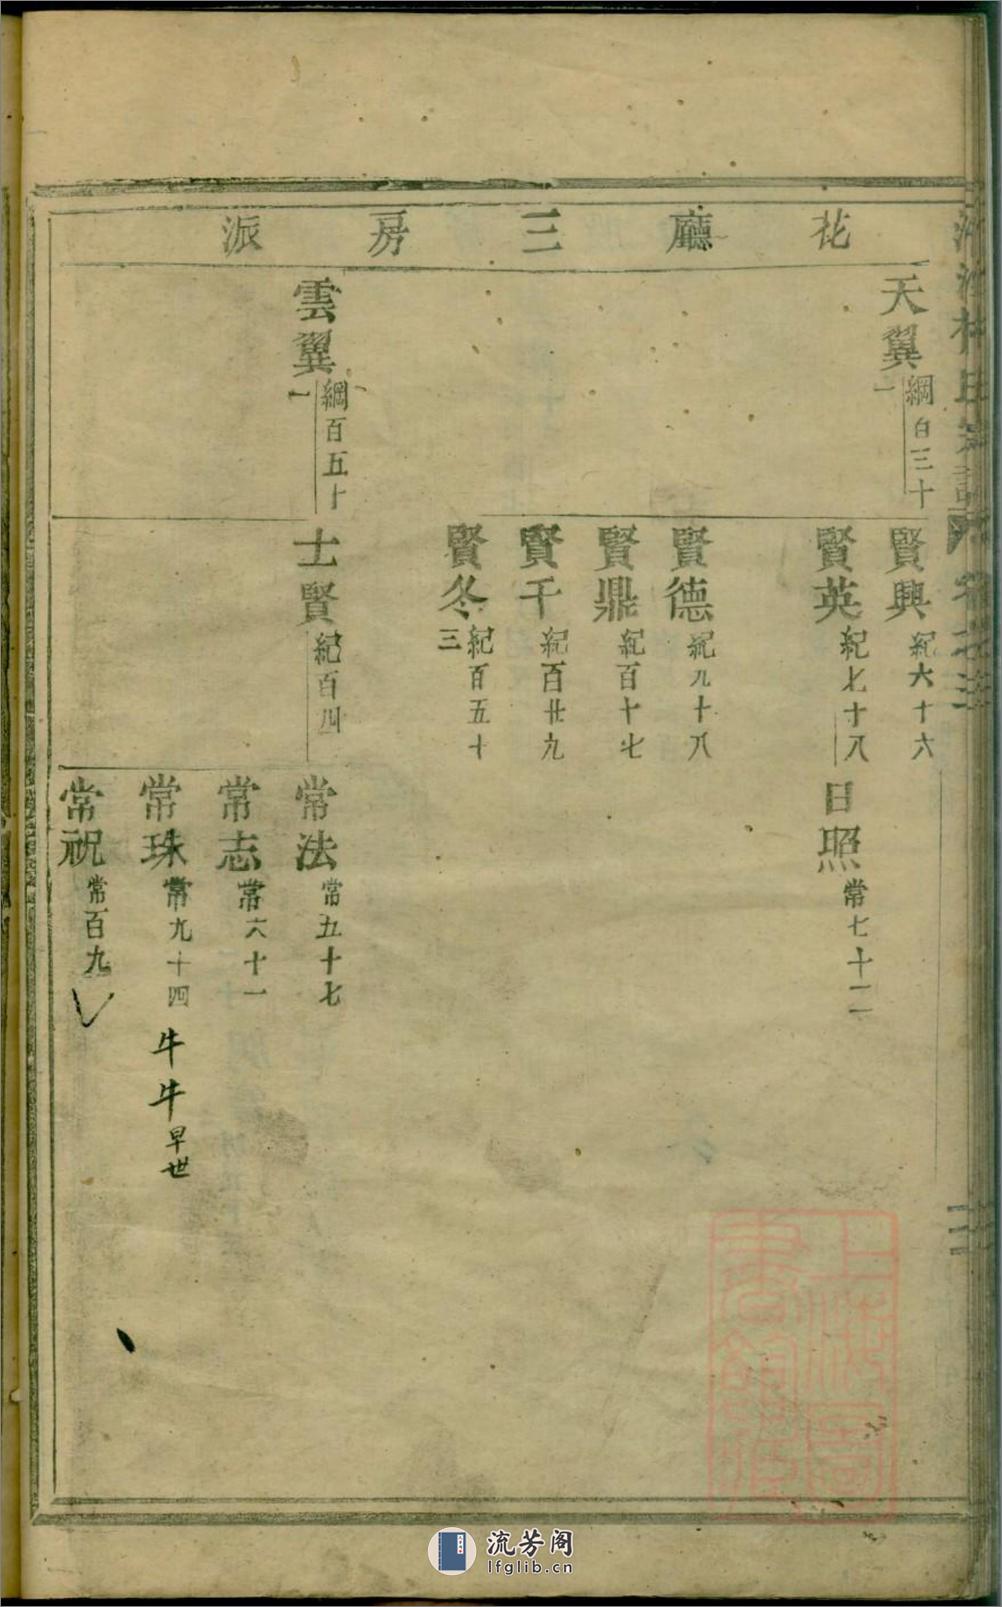 花廳三房派
天翼 綱百三十一
雲翼 綱百五十一
賢興 紀六十六
賢英 紀七十八
賢德 紀九十八
賢鼎 紀百十七
賢千 紀百廿九
賢冬 紀百五十三
士賢 紀百四
日照 常七十二
常法 常五十七
常志 常六十一
常珠 常九十四 牛牛早世
常祝 常百九
上海圖書館藏
流芳阁
lfglib.cn